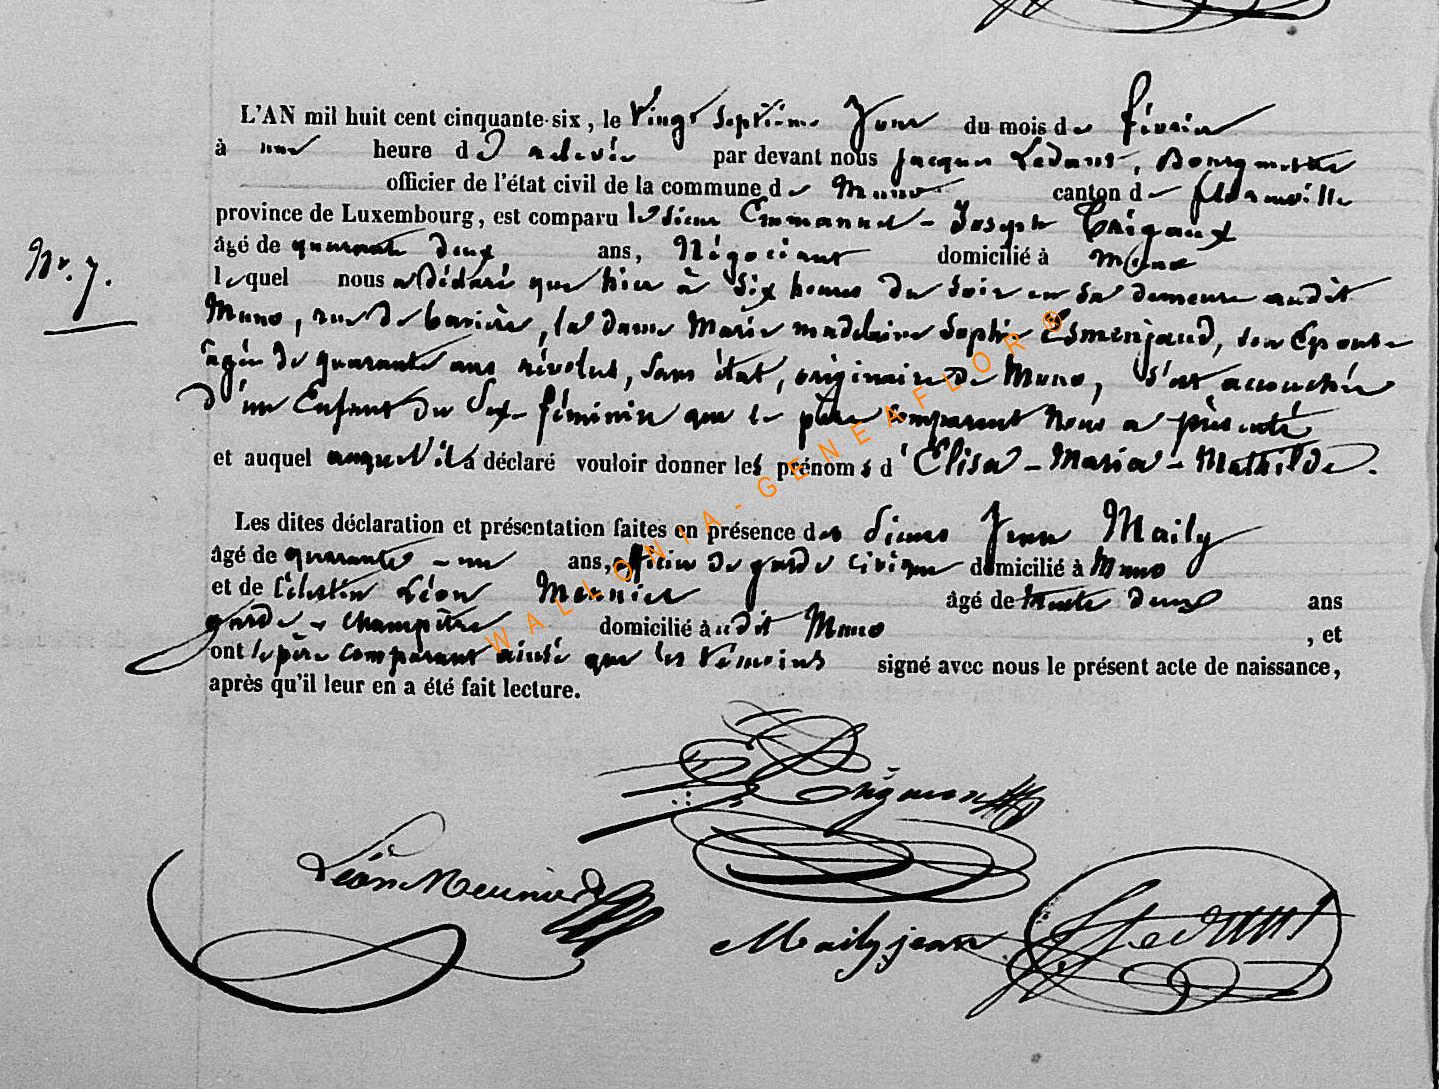 L'AN mil huit cent cinquante-six, le Vingt Septième Jour du mois de février
à une heure de relevée par devant nous Jacques Ledant, Bourgmestre
officier de l'état civil de la commune de Muno canton de florenville
province de Luxembourg, est comparu le Sieur Emmanuel-Joseph Trigaux
âgé de quarante deux ans, Négociant domicilié à Muno
Nr. 7.
lequel nous a Déclaré que hier à Six heures du Soir en Sa demeure audit
Muno, rue De barière, la dame Marie madelaine Sophie Esmenjaud, son Epouse
agée De quarante ans révolus, Sans état, originaire De Muno, S'est accouchée
d'un Enfant du Sexe féminin que le père comparant Nous a présenté
et auquel auquel il a déclaré vouloir donner les prénoms d'Elisa-Maria-Mathilde.
Les dites déclaration et présentation faites en présence des Sieurs Jean Maily
âgé de quarante-un ans, officier De garde civique domicilié à Muno
et de Célestin Léon Meunier âgé de trente deux ans
garde-champêtre domicilié audit Muno , et
ont le père comparant ainsi que les témoins signé avec nous le présent acte de naissance,
après qu'il leur en a été fait lecture.
WALLONIA-GENEAFLOR©
Léon Meunier
Maily jean
JLedant